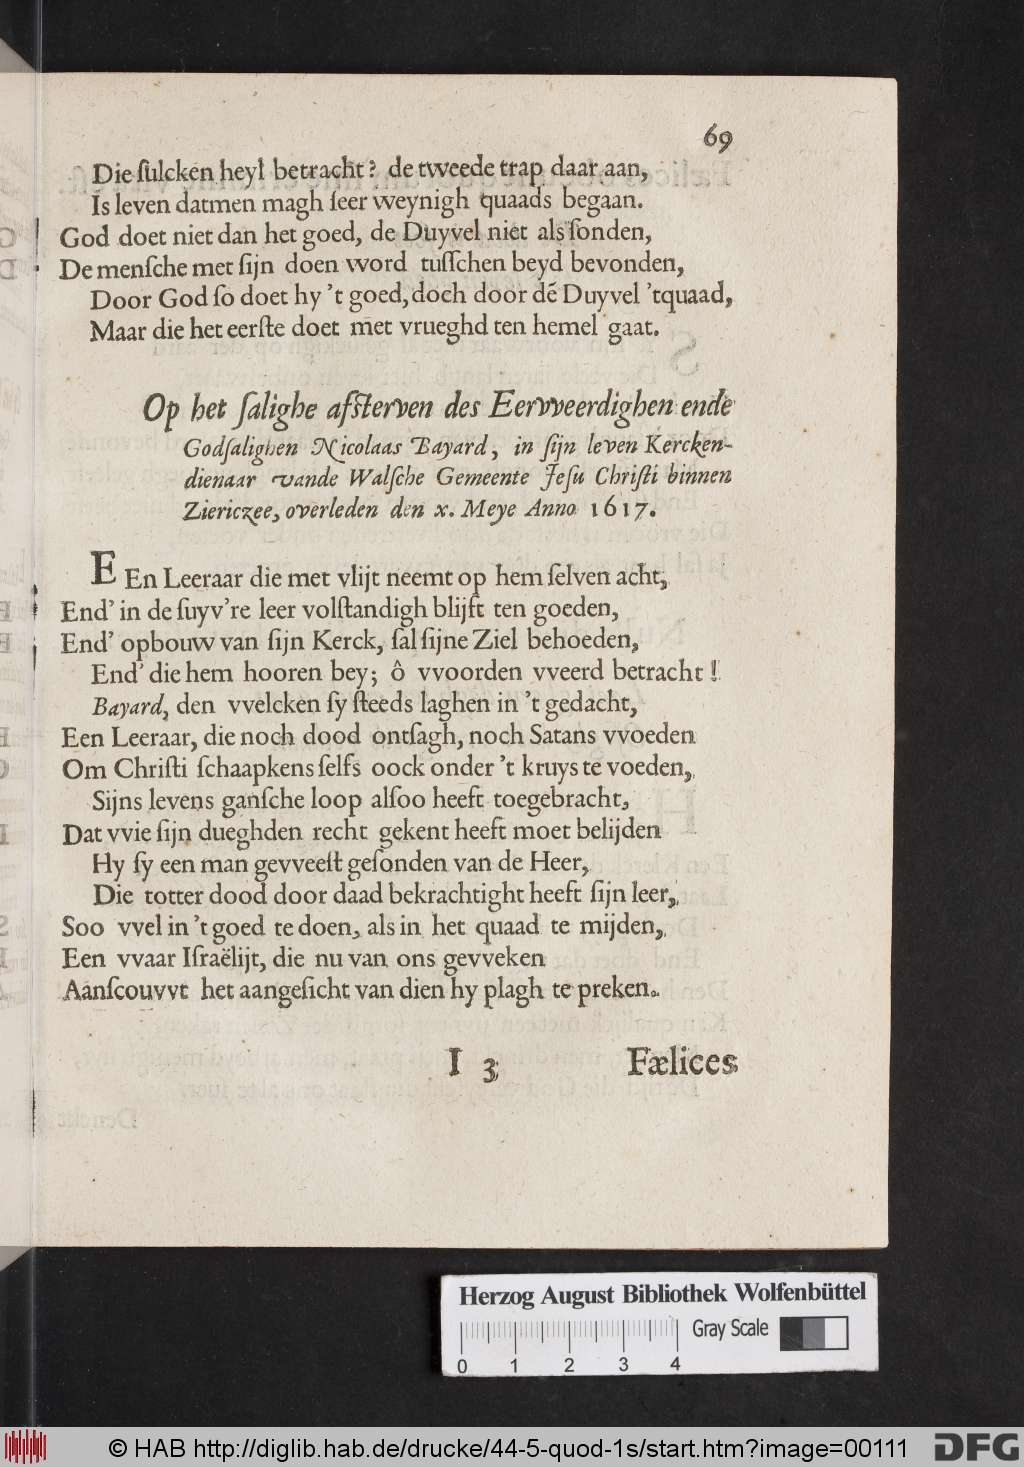 69
Die ſulcken heyl betracht? de tweede trap daar aan,
Is leven datmen magh ſeer weynigh quaads begaan.
God doet niet dan het goed, de Duyvel niet als ſonden,
De menſche met ſijn doen word tuſſchen beyd bevonden,
Door God ſo doet hy 't goed, doch door dē Duyvel 'tquaad,
Maar die het eerſte doet met vrueghd ten hemel gaat.
Op het ſalighe afſterven des Eervveerdighen ende
Godſalighen Nicolaas Bayard, in ſijn leven Kercken-
dienaar vande Walſche Gemeente Jeſu Chriſti binnen
Ziericzee, overleden den x. Meye Anno 1617.
EEn Leeraar die met vlijt neemt op hem ſelven acht,
End' in de ſuyv're leer volſtandigh blijft ten goeden,
End' opbouw van ſijn Kerck, ſal ſijne Ziel behoeden,
End' die hem hooren bey; ô vvoorden vveerd betracht!
Bayard, den vvelcken ſy ſteeds laghen in 't gedacht,
Een Leeraar, die noch dood ontſagh, noch Satans vvoeden
Om Chriſti ſchaapkens ſelfs oock onder 't kruys te voeden,
Sijns levens ganſche loop alſoo heeft toegebracht,
Dat vvie ſijn dueghden recht gekent heeft moet belijden
Hy ſy een man gevveeſt geſonden van de Heer,
Die totter dood door daad bekrachtight heeft ſijn leer,
Soo vvel in 't goed te doen, als in het quaad te mijden,
Een vvaar Iſraëlijt, die nu van ons gevveken
Aanſcouvvt het aangeſicht van dien hy plagh te preken.
I 3 Fælices
Herzog August Bibliothek Wolfenbüttel
Gray Scale
0 1 2 3 4
© HAB http://diglib.hab.de/drucke/44-5-quod-1s/start.htm?image=00111
DFG